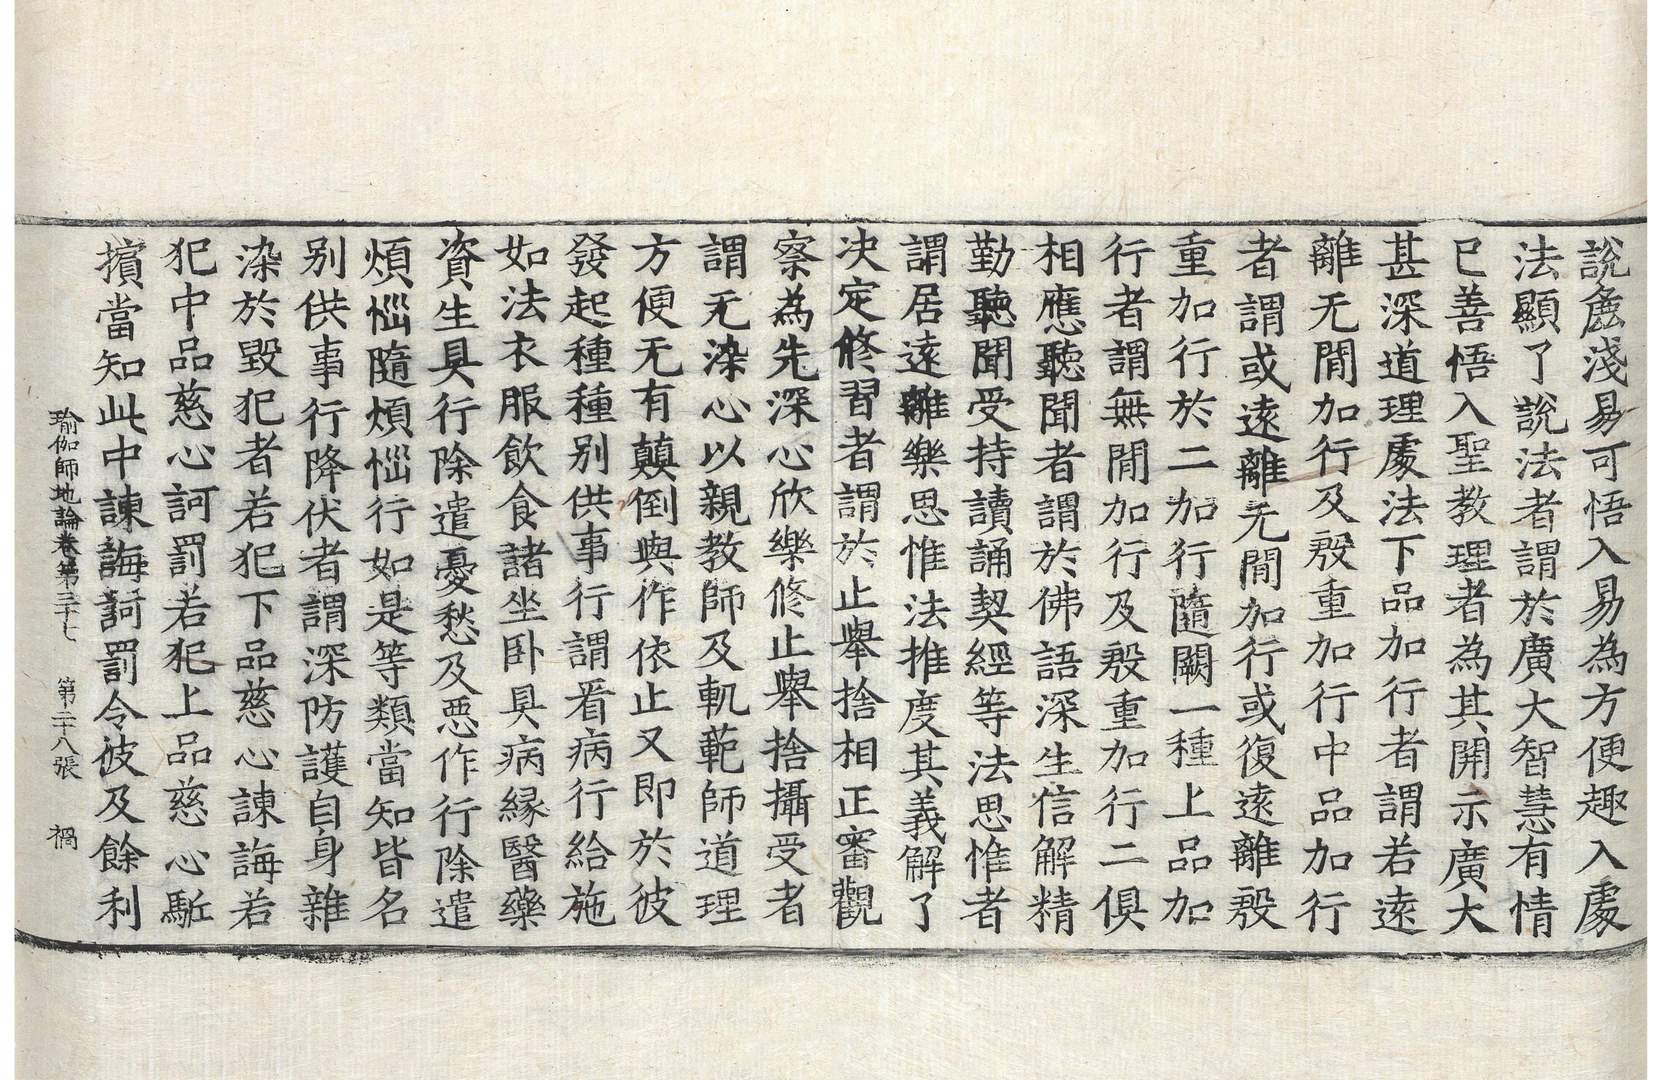 說麁淺易可悟入易為方便趣入處
法顯了說法者謂於廣大智慧有情
已善悟入聖教理者為其開示廣大
甚深道理處法下品加行者謂若遠
離无閒加行及殷重加行中品加行
者謂或遠離无閒加行或復遠離殷
重加行於二加行隨闕一種上品加
行者謂無閒加行及殷重加行二俱
相應聽聞者謂於佛語深生信解精
勤聽聞受持讀誦契經等法思惟者
謂居遠離樂思惟法推度其義解了
决定修習者謂於止舉捨相正審觀
察為先深心欣樂修止舉捨攝受者
謂无染心以親教師及軌範師道理
方便无有顛倒與作依止又即於彼
發起種種別供事行謂看病行給施
如法衣服飲食諸坐卧具病緣醫藥
資生具行除遣憂愁及惡作行除遣
煩惱隨煩惱行如是等類當知皆名
別供事行降伏者謂深防護自身雜
染於毀犯者若犯下品慈心諫誨若
犯中品慈心訶罰若犯上品慈心駈
擯當知此中諫誨訶罰令彼及餘利
瑜伽師地論卷第三十七 第二十八張 禍